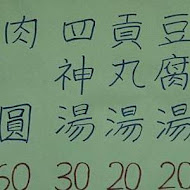 豆腐湯 20
貢丸湯 20
四神湯 30
肉圓 60